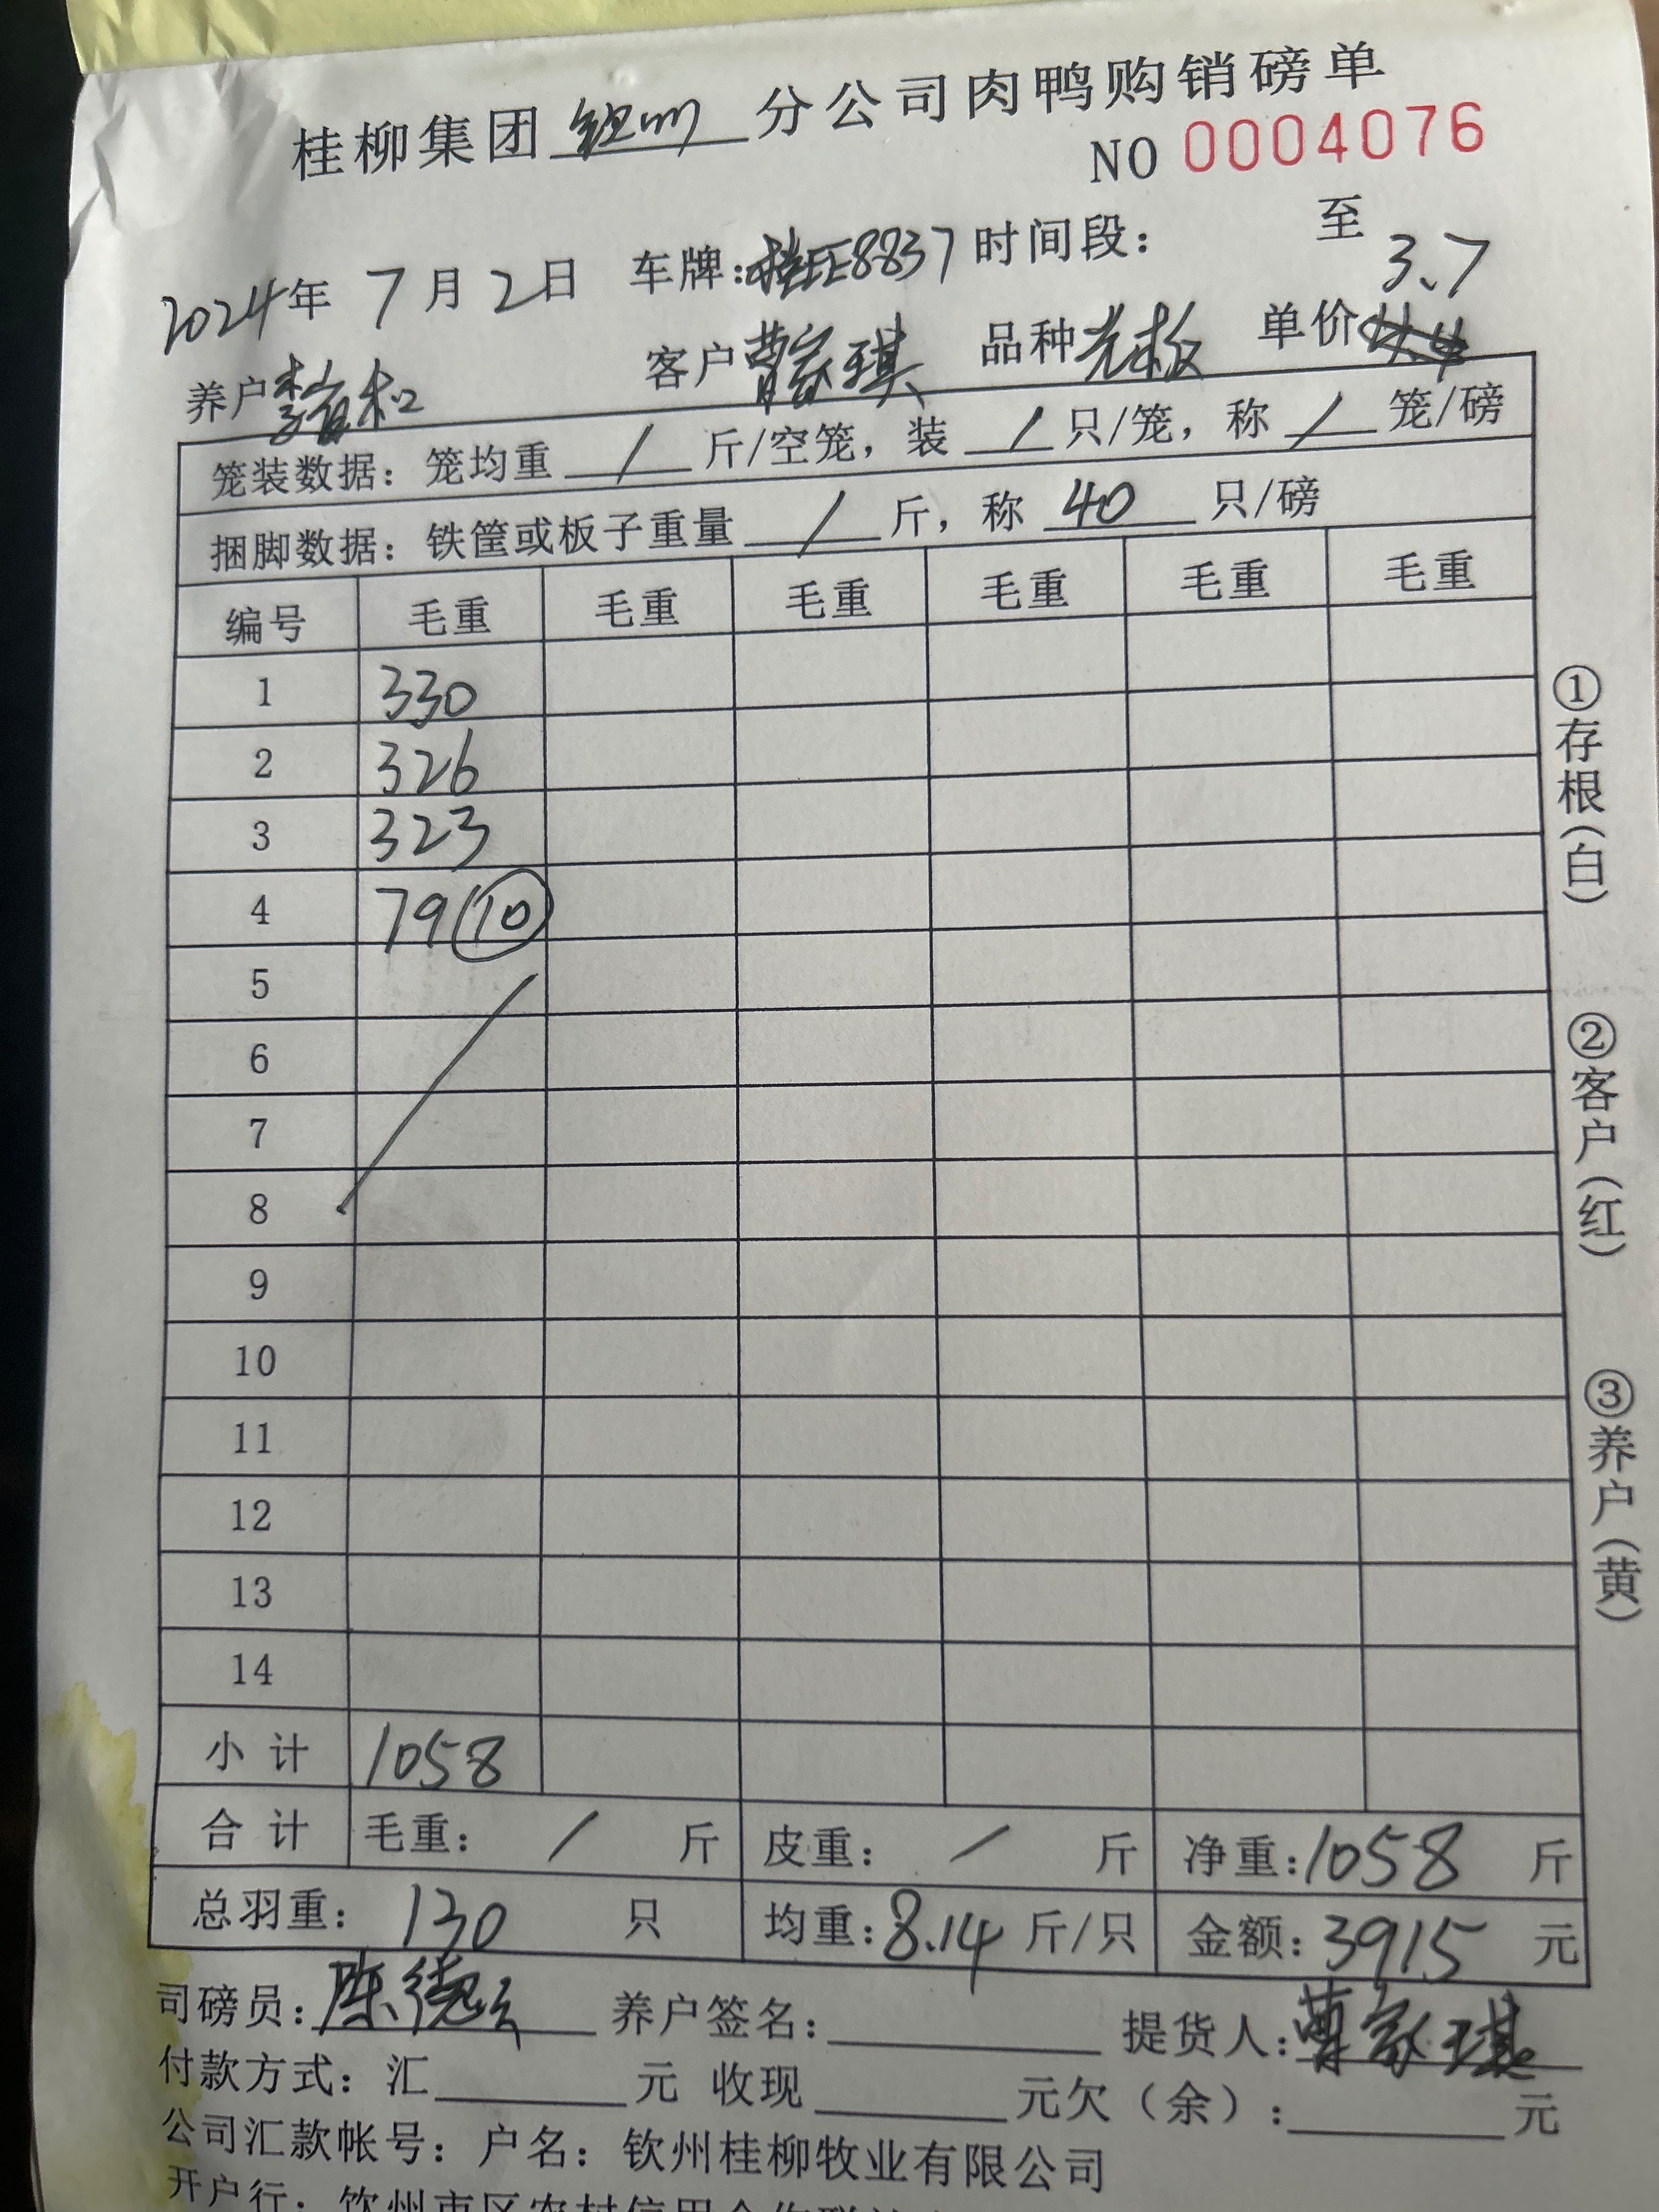 桂柳集团 钦州 分公司肉鸭购销磅单
NO 0004076
2024年 7月2日 车牌:桂E8837 时间段: 至
3.7
养户 李富和 客户 曹家琪 品种 光板 单价
笼装数据: 笼均重 / 斤/空笼, 装 / 只/笼, 称 / 笼/磅
捆脚数据: 铁筐或板子重量 / 斤, 称 40 只/磅
编号 毛重 毛重 毛重 毛重 毛重 毛重
1 330
2 326
3 323
4 79 (10)
5
6
7
8
9
10
11
12
13
14
小计 1058
合计 毛重: / 斤 皮重: / 斤 净重:1058 斤
总羽重: 130 只 均重:8.14 斤/只 金额:3915 元
司磅员: 陈德 养户签名: 提货人: 曹家琪
付款方式: 汇 元 收现 元欠(余): 元
公司汇款帐号: 户名: 钦州桂柳牧业有限公司
开户行: 钦州市区农村信用合作联
①存根(白)
②客户(红)
③养户(黄)